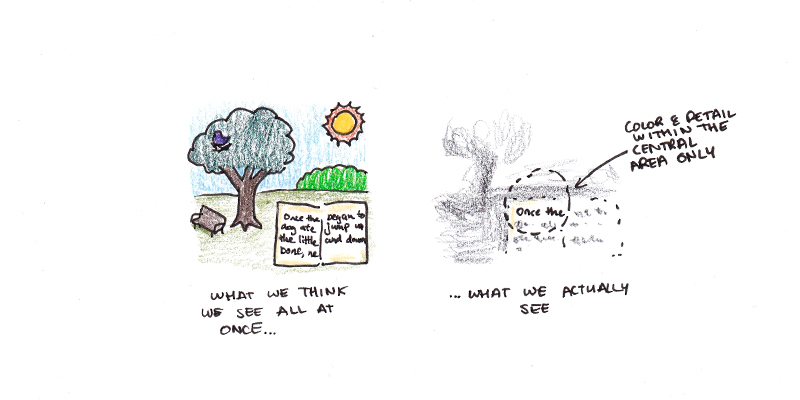 Once the
dog ate
the little
bone, he
began to
jump up
and down
WHAT WE THINK
WE SEE ALL AT
ONCE...
Once the
COLOR & DETAIL
WITHIN THE
CENTRAL
AREA ONLY
...WHAT WE ACTUALLY
SEE